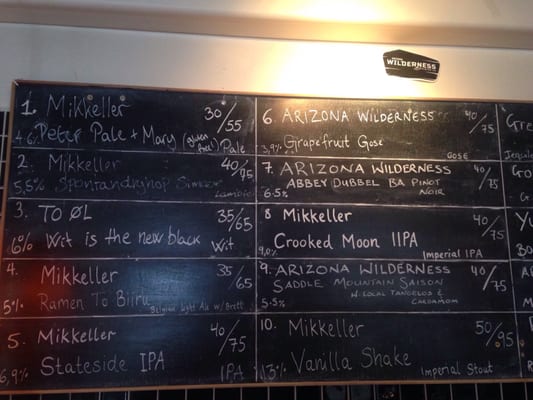 WILDERNESS
1. Mikkeller 30/55
4.6% Peter Pale + Mary (gluten free!) Pale
2. Mikkeller 40/95
5,5% Spontandryhop Simcoe Lambic
3. TO ØL 35/65
6% Wit is the new black Wit
4. Mikkeller 35/65
5% Ramen To Biiru Belgian Light Ale w/ Brett
5. Mikkeller 40/75
6,9% Stateside IPA IPA
6. ARIZONA WILDERNESS 40/75
3,9% Grapefruit Gose GOSE
7. ARIZONA WILDERNESS 40/75
ABBEY DUBBEL BA PINOT
6.5% NOIR
8 Mikkeller 40/75
Crooked Moon IIPA
9,0% Imperial IPA
9. ARIZONA WILDERNESS 40/75
SADDLE MOUNTAIN SAISON
5.5% W. LOCAL TANGELOS &
CARDAMOM
10. Mikkeller 50/95
13% Vanilla Shake Imperial Stout